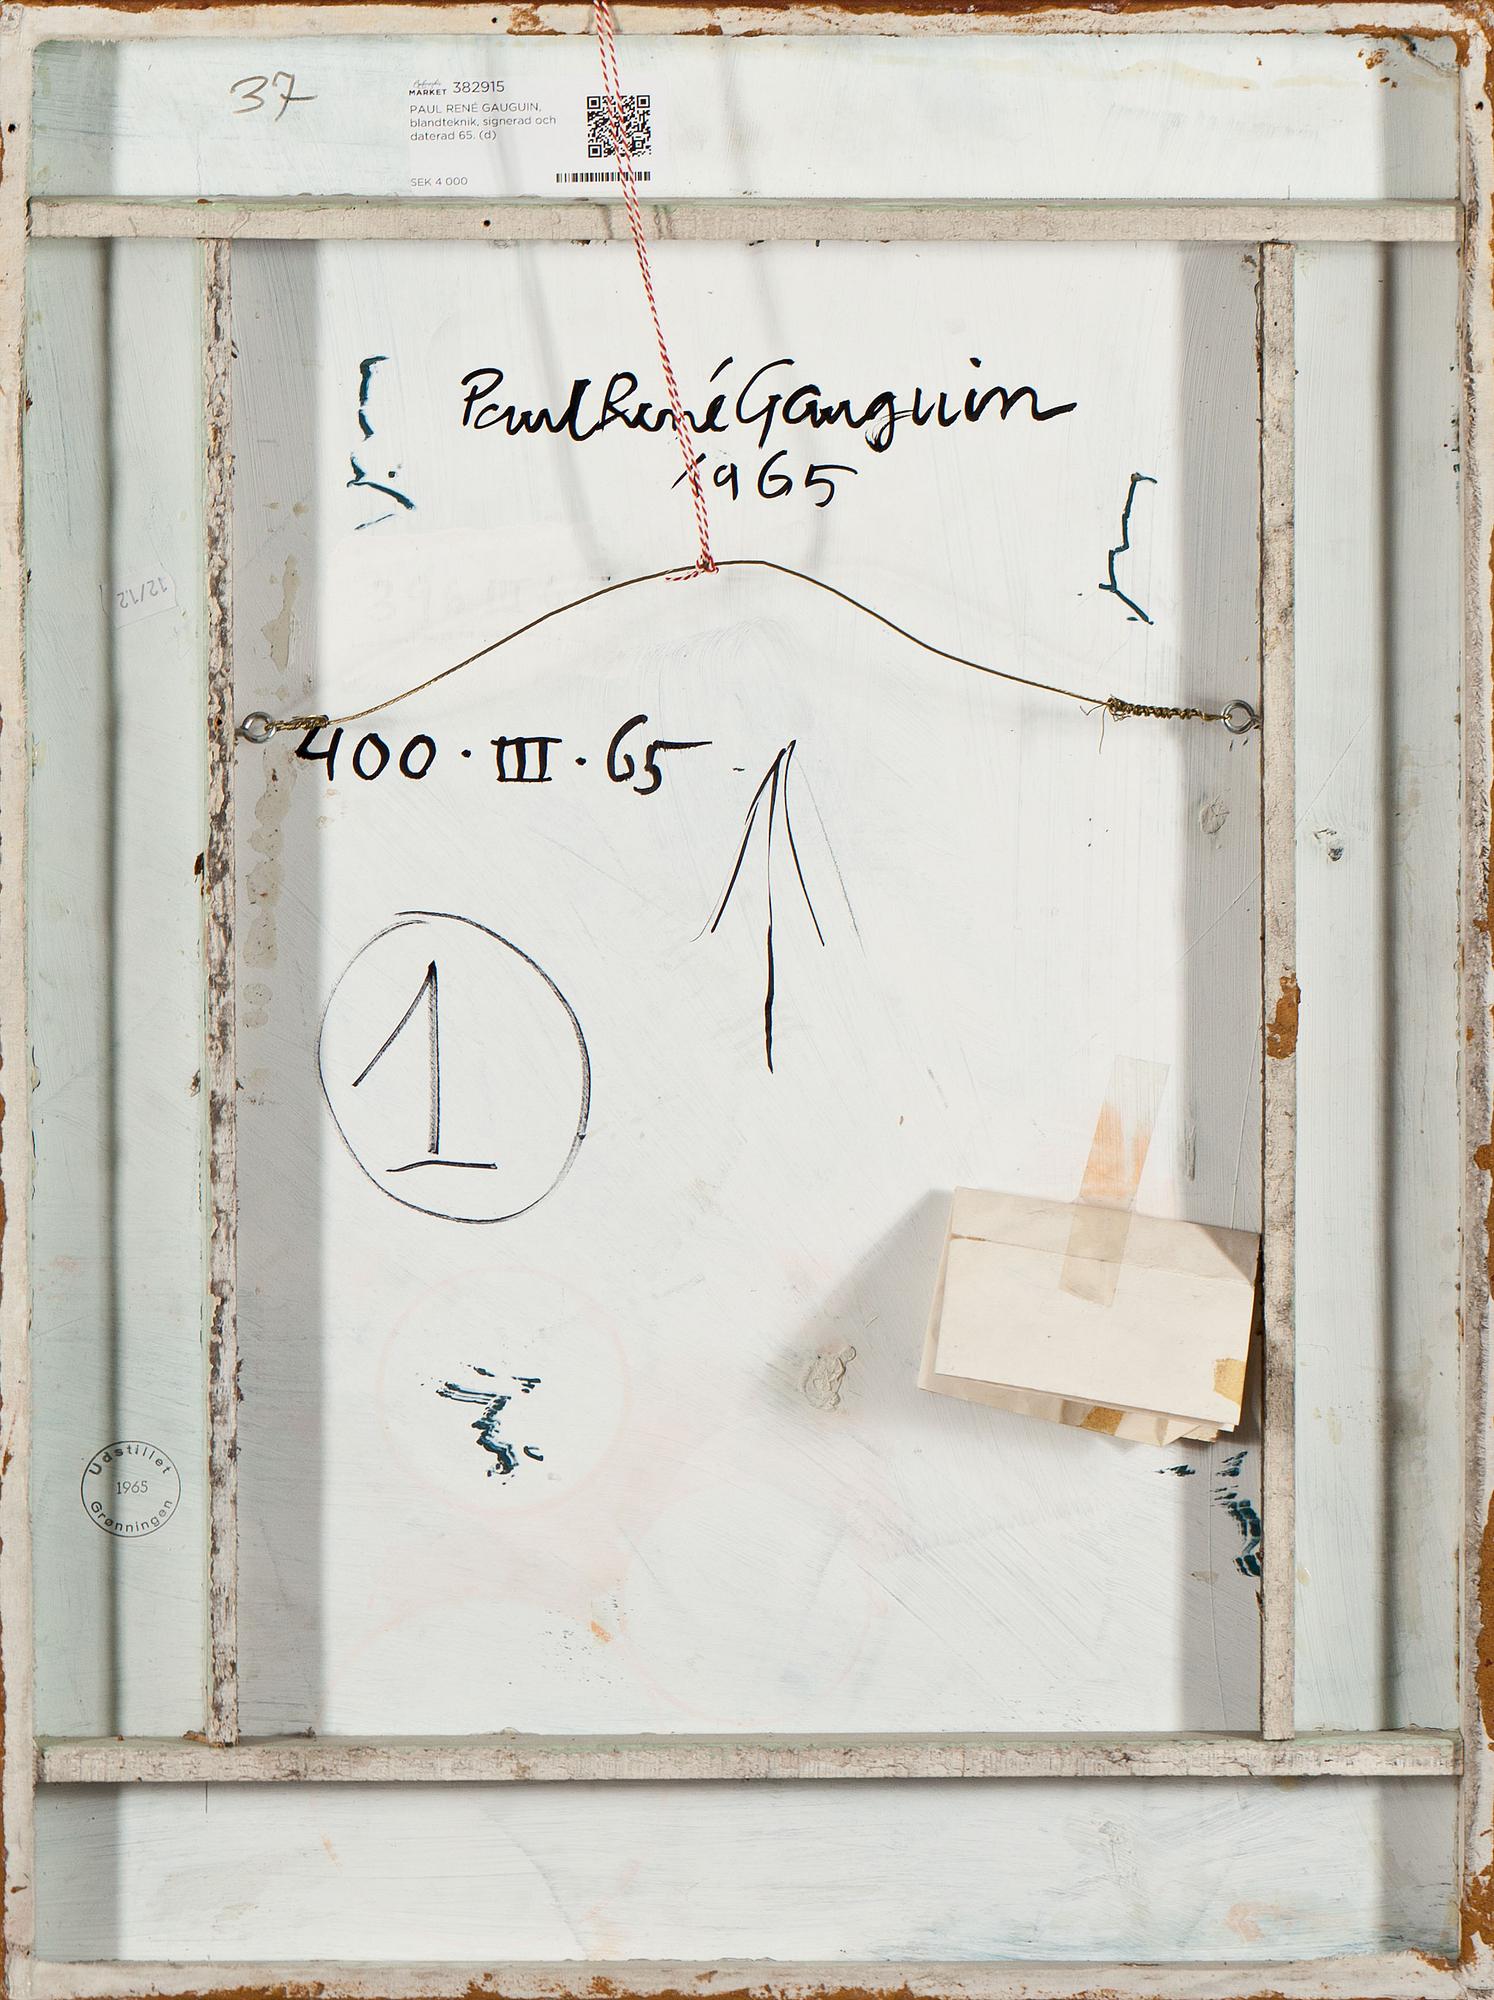 37
Bukowskis
MARKET 382915
PAUL RENÉ GAUGUIN,
blandteknik, signerad och
daterad 65. (d)
SEK 4 000
Paul René Gauguin
1965
12/12
400·III·65
1
Udstillet
1965
Grønningen